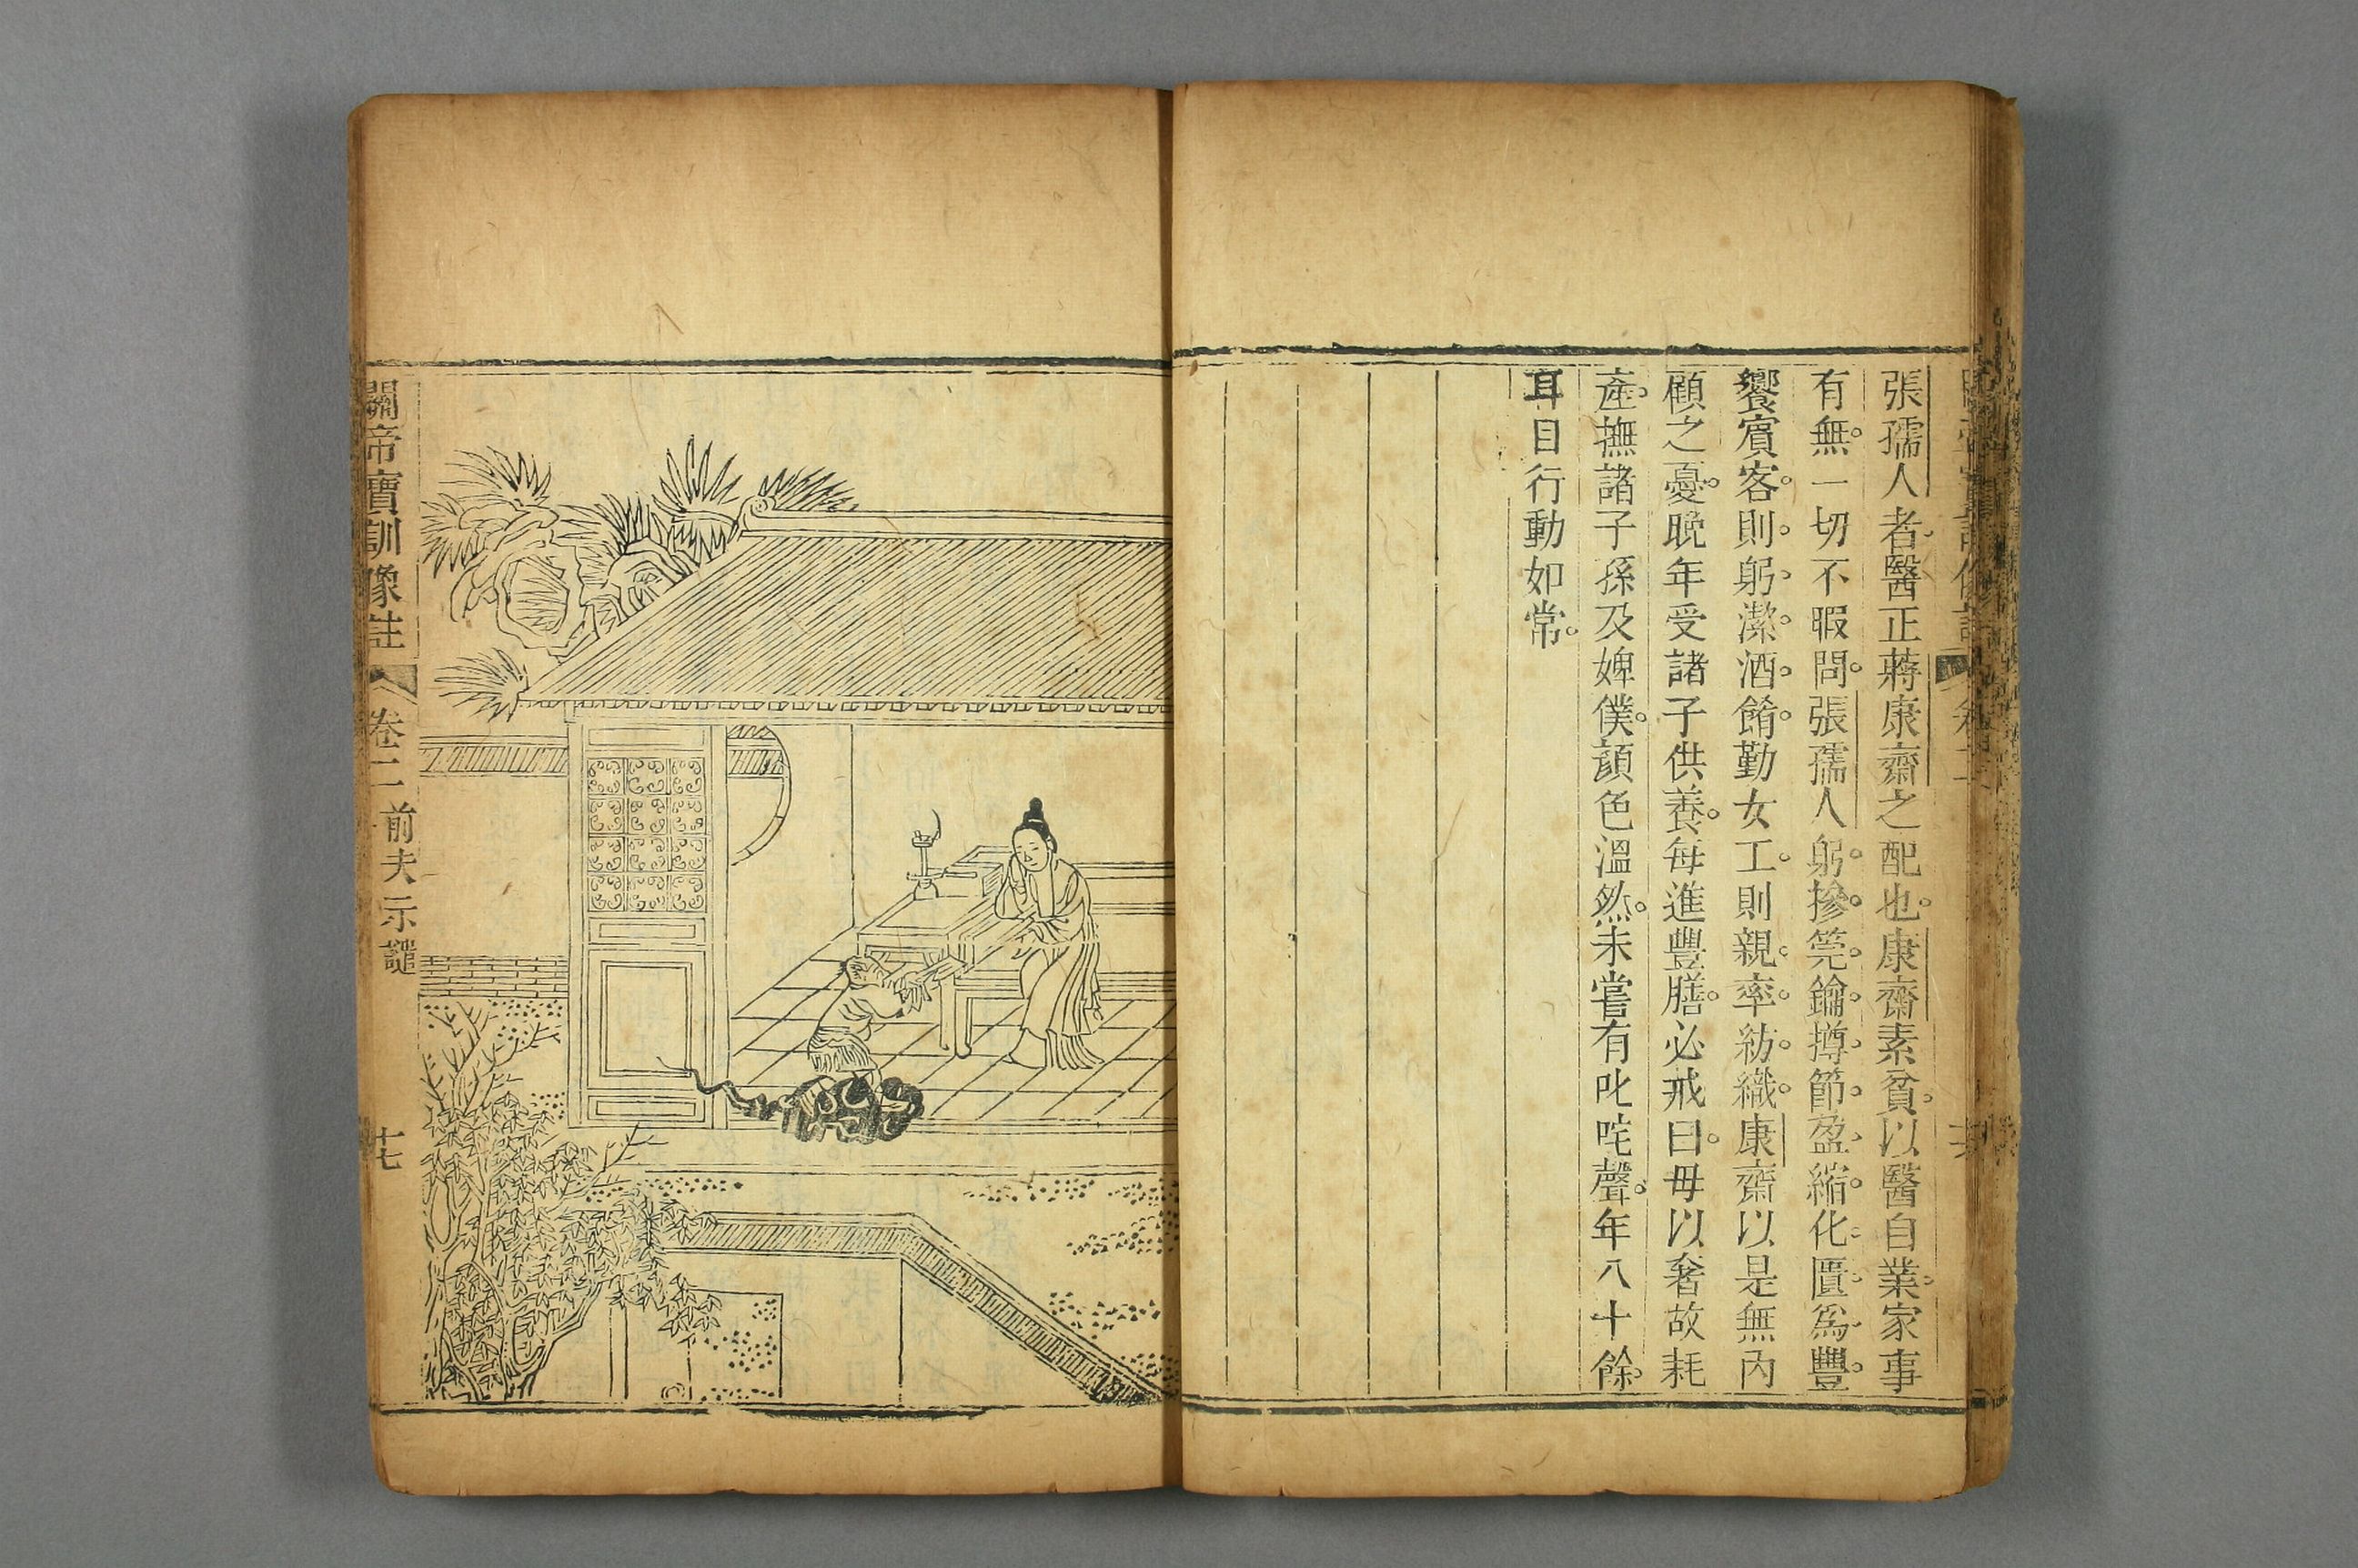 張孺人者醫正蔣康齋之配也。康齋素貧以醫自業家事
有無。一切不暇問。張孺人躬摻筦鑰撙節盈縮化匱爲豐。
饗賓客。則躬潔。酒餚。勤女工則親率紡織康齋以是無內
顧之憂。晚年受諸子供養。每進豐膳。必戒曰。毋以奢故耗
產。撫諸子孫及婢僕。顏色溫然。未嘗有叱咤聲。年八十餘。
耳目行動如常。
關帝寶訓像註 卷二 前夫示譴 十七